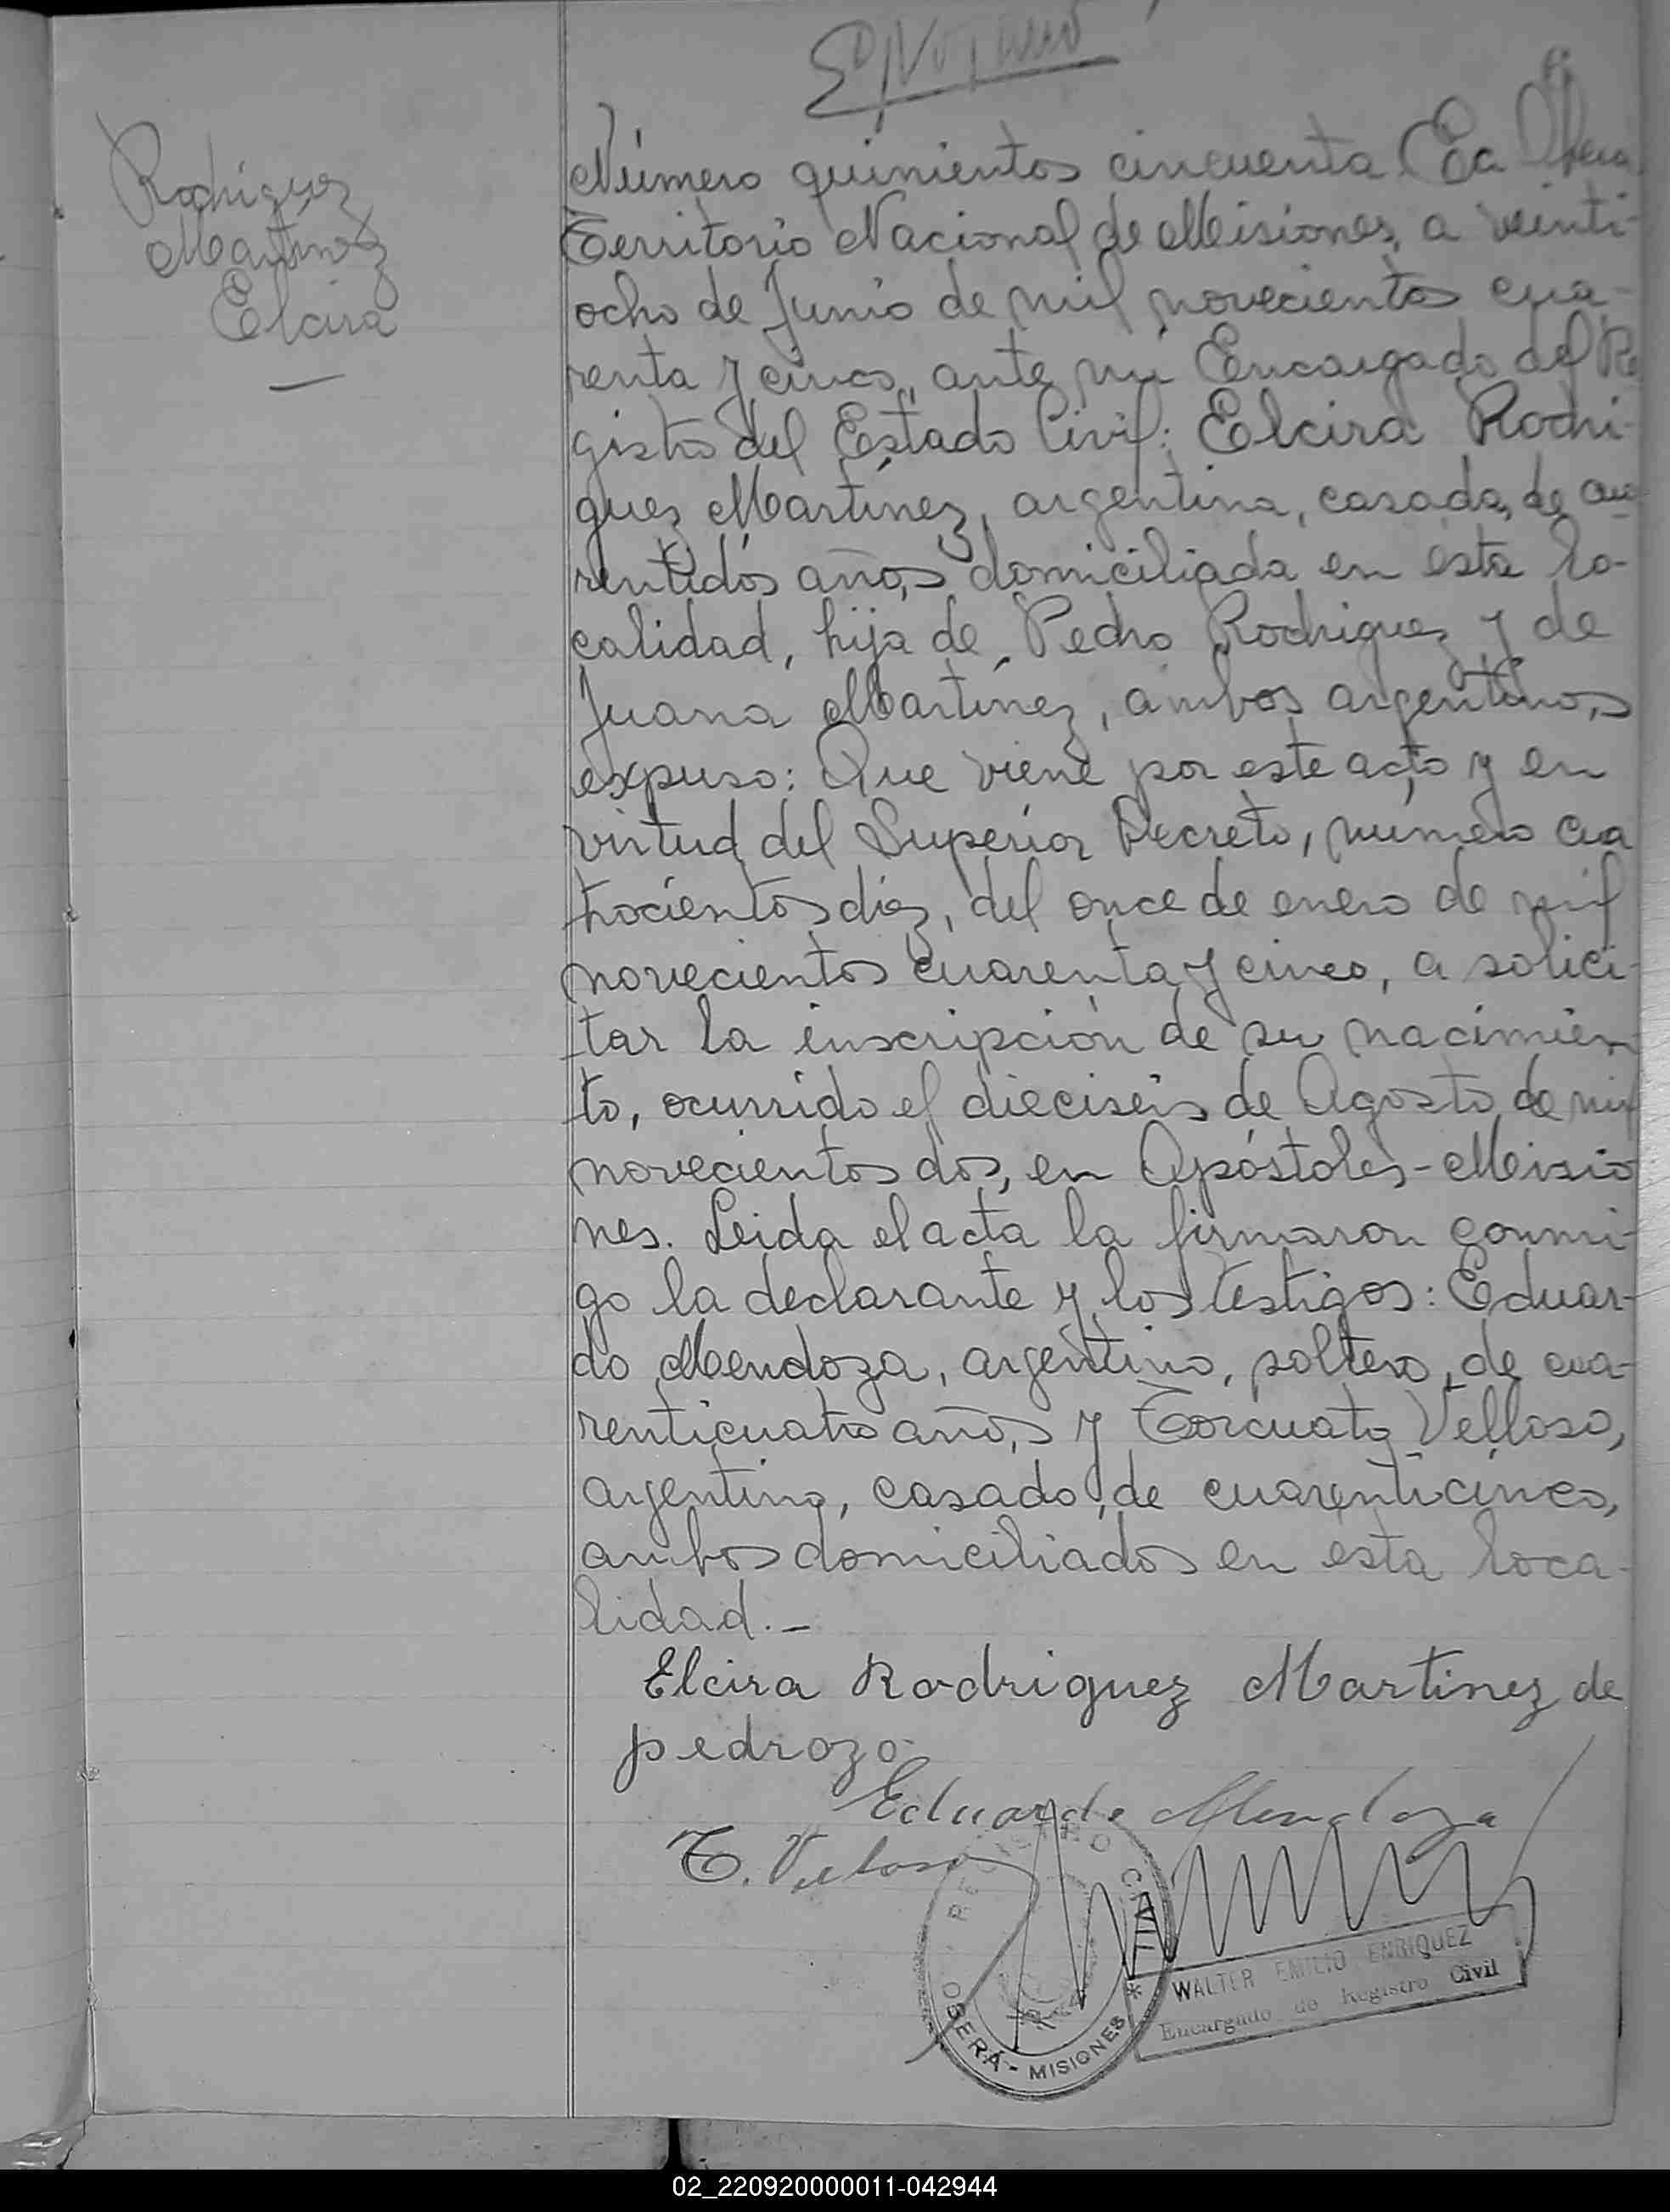 Rodriguez
Martinez
Elcira
Número quinientos cincuenta En Oberá
Territorio Nacional de Misiones, a veinti-
ocho de Junio de mil novecientos cua-
renta y cinco, ante mi Encargado del Re
gistro del Estado Civil: Elcira Rodri-
guez Martínez, argentina, casada, de cua
rentidós años domiciliada en ésta lo-
calidad, hija de Pedro Rodriguez y de
Juana Martínez, ambos argentinos,
expuso: Que viene por este acto y en
virtud del Superior Decreto, número cua
trocientos diez, del once de enero de mil
novecientos cuarenta y cinco, a solici-
tar la inscripción de su nacimien
to, ocurrido el dieciseis de Agosto de mil
novecientos dos, en Apóstoles - Misio
nes. Leida el acta la firmaron conmi-
go la declarante y los testigos: Eduar-
do Mendoza, argentino, soltero, de cua-
renticuatro años, y Torcuato Velloso,
argentino, casado, de cuarenticinco,
ambos domiciliados en esta loca-
lidad.-
Elcira Rodriguez Martinez de
pedrozo
Eduardo Mendoza
T. Veloso
REGISTRO CIVIL
OBERÁ - MISIONES *
WALTER EMILIO ENRIQUEZ
Encargado de Registro Civil
02_220920000011-042944